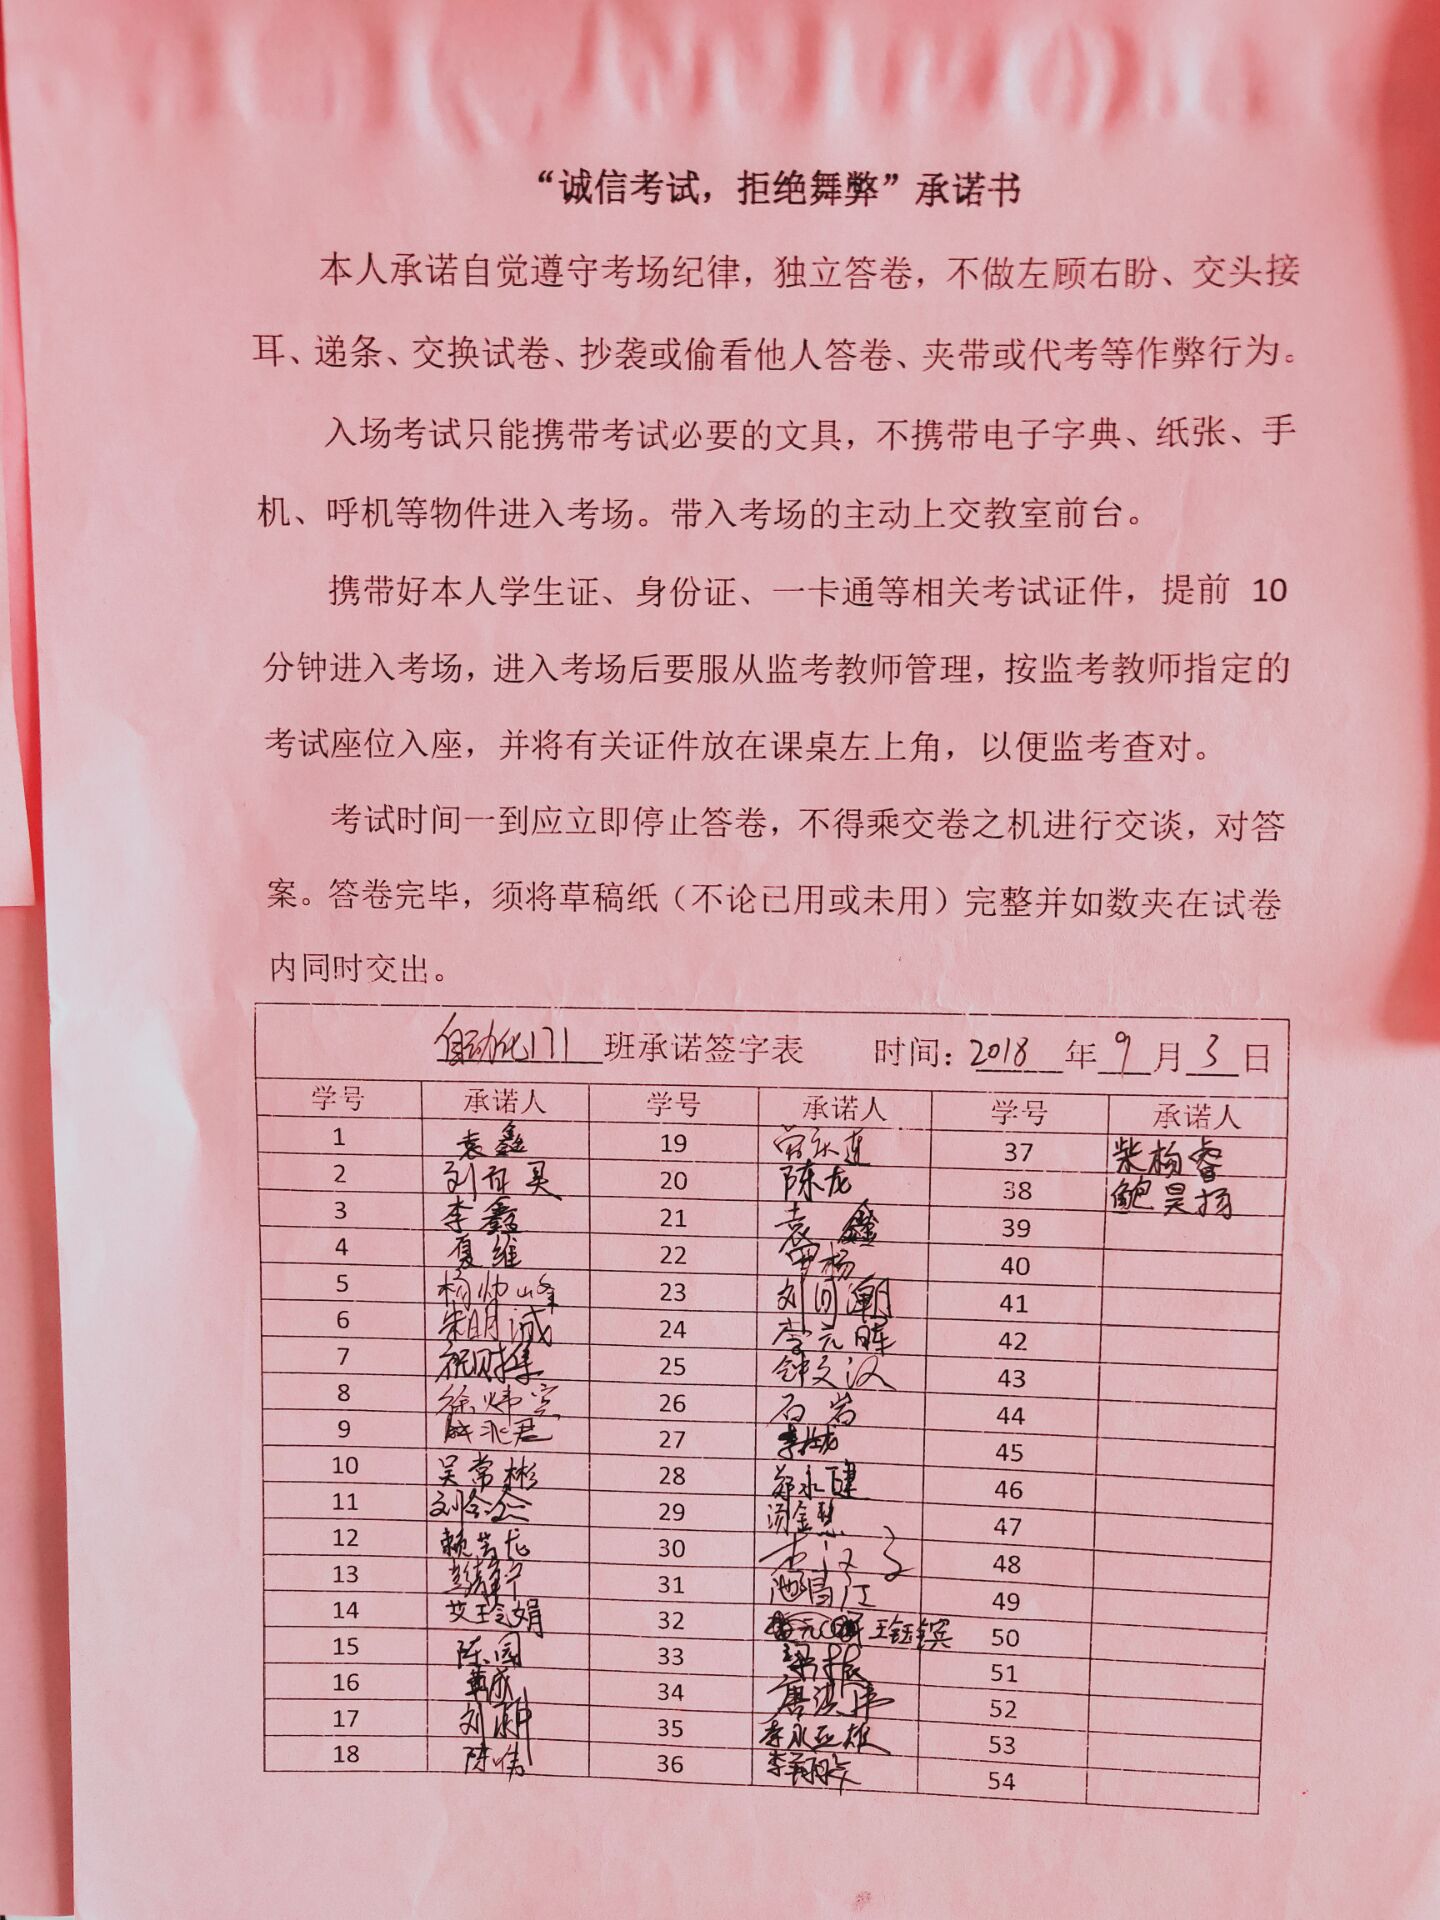 “诚信考试，拒绝舞弊”承诺书
本人承诺自觉遵守考场纪律，独立答卷，不做左顾右盼、交头接
耳、递条、交换试卷、抄袭或偷看他人答卷、夹带或代考等作弊行为。
入场考试只能携带考试必要的文具，不携带电子字典、纸张、手
机、呼机等物件进入考场。带入考场的主动上交教室前台。
携带好本人学生证、身份证、一卡通等相关考试证件，提前 10
分钟进入考场，进入考场后要服从监考教师管理，按监考教师指定的
考试座位入座，并将有关证件放在课桌左上角，以便监考查对。
考试时间一到应立即停止答卷，不得乘交卷之机进行交谈，对答
案。答卷完毕，须将草稿纸（不论已用或未用）完整并如数夹在试卷
内同时交出。
自动化171 班承诺签字表 时间：2018 年 9 月 3 日
学号 承诺人 学号 承诺人 学号 承诺人
1 袁鑫 19 37 柴杨睿
2 20 陈龙 38 鲍昊扬
3 李鑫 21 袁鑫 39
4 夏维 22 40
5 杨帅峰 23 41
6 朱明诚 24 李元晖 42
7 祝财集 25 钟文汉 43
8 26 石岩 44
9 27 45
10 吴常彬 28 郑永健 46
11 29 汤金慧 47
12 30 48
13 31 池昌江 49
14 32 王钰镔 50
15 陈园 33 51
16 34 唐洪伟 52
17 35 李永亚雄 53
18 陈伟 36 54